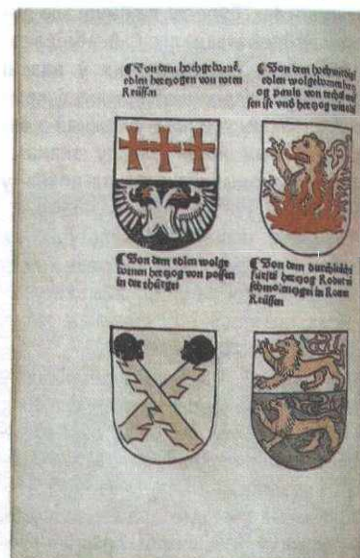 ¶ Von dem hochgebornē
edlen hertzogen von roten
Reüssen
¶ Von dem hochwirdigē
edlen wolgebornen hertz
og pauls von
sen ist vnd hertzog
¶ Von dem edlen wolge
bornen hertzog von possen
in der thürgei
¶ Von dem durchleüchti
fürsten hertzog
in Roten
Reüssen